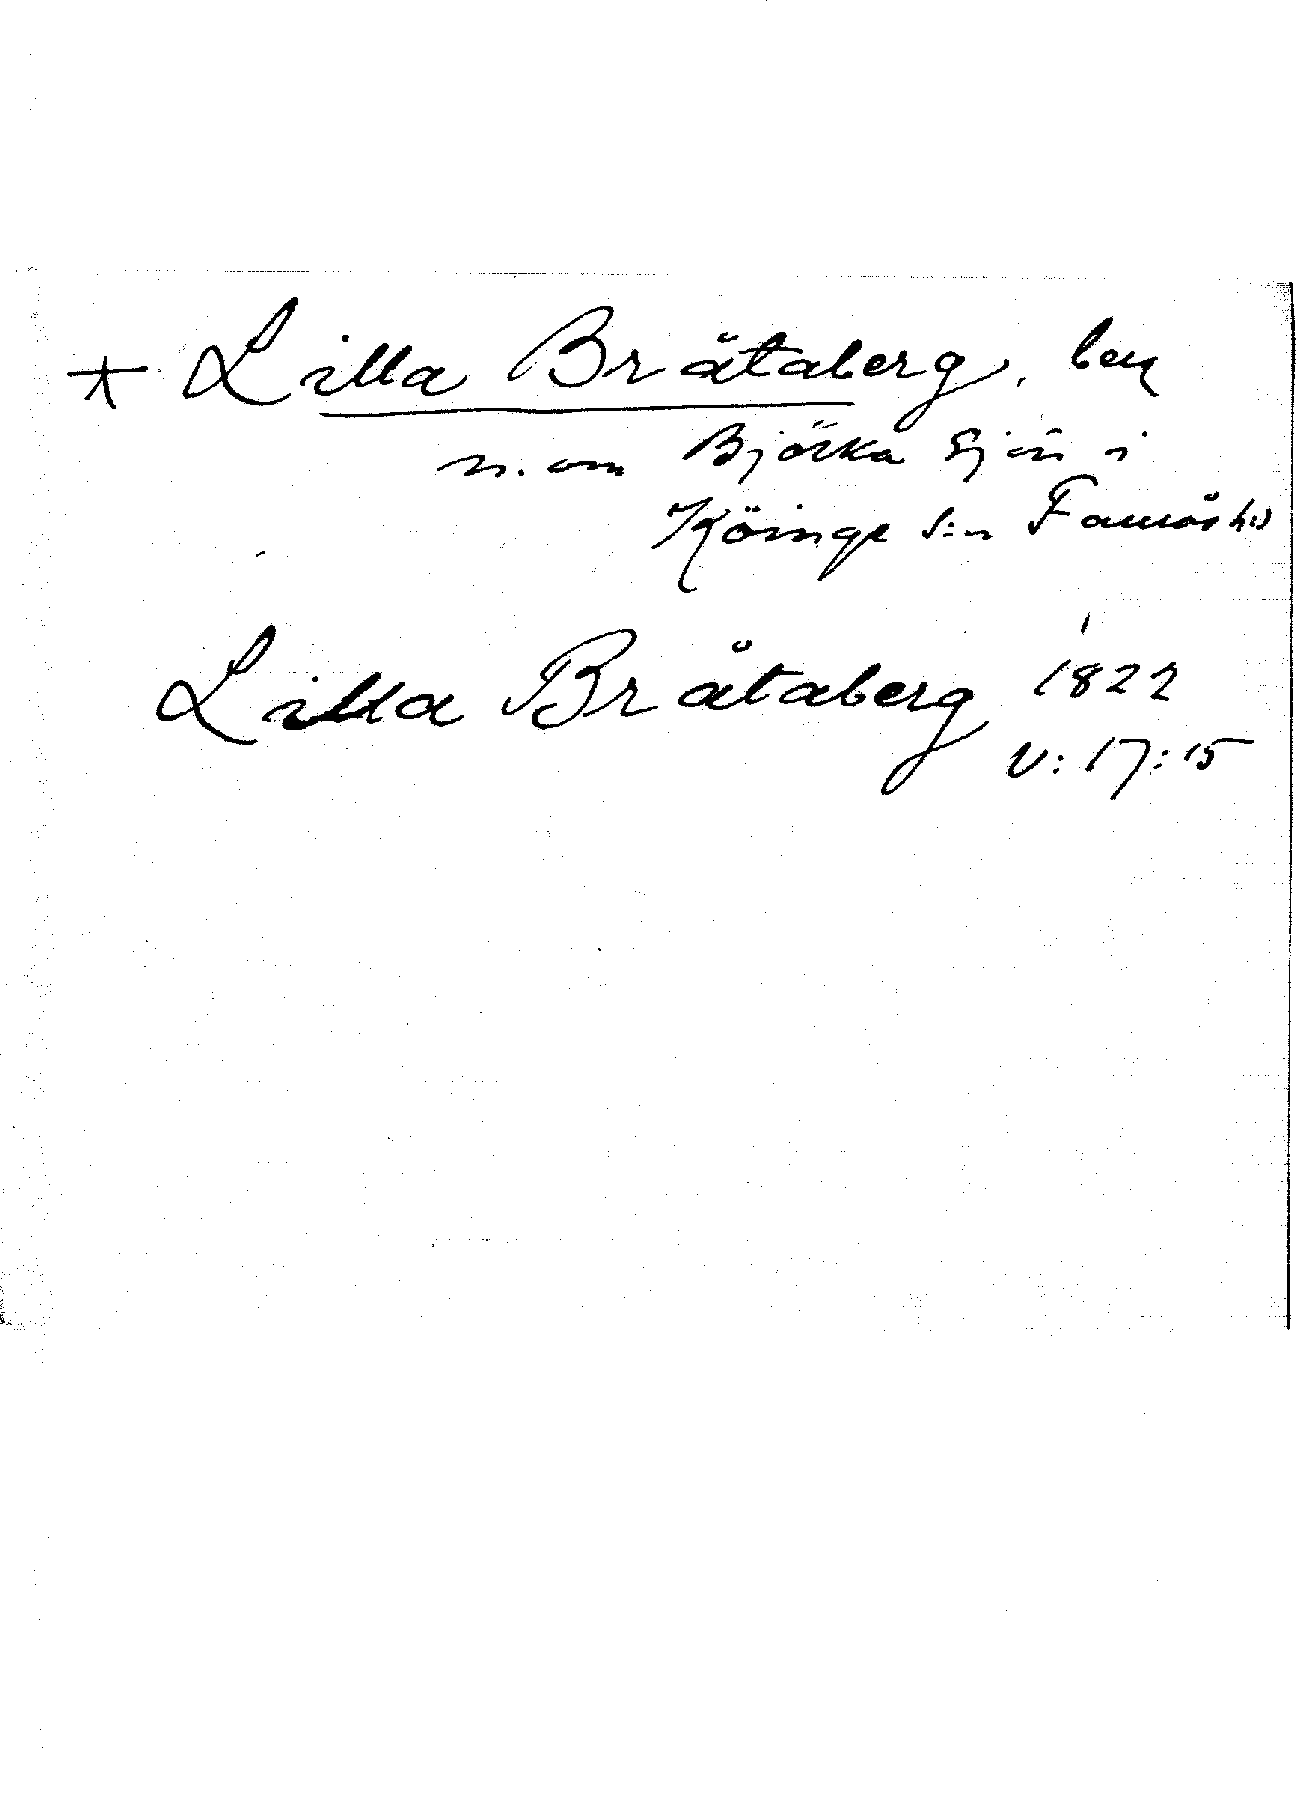 * Lilla Bråtaberg, berg
n. om Björka Sjön i
Köinge s:n Faurås hd
Lilla Bråtaberg 1822
V: 17: 15